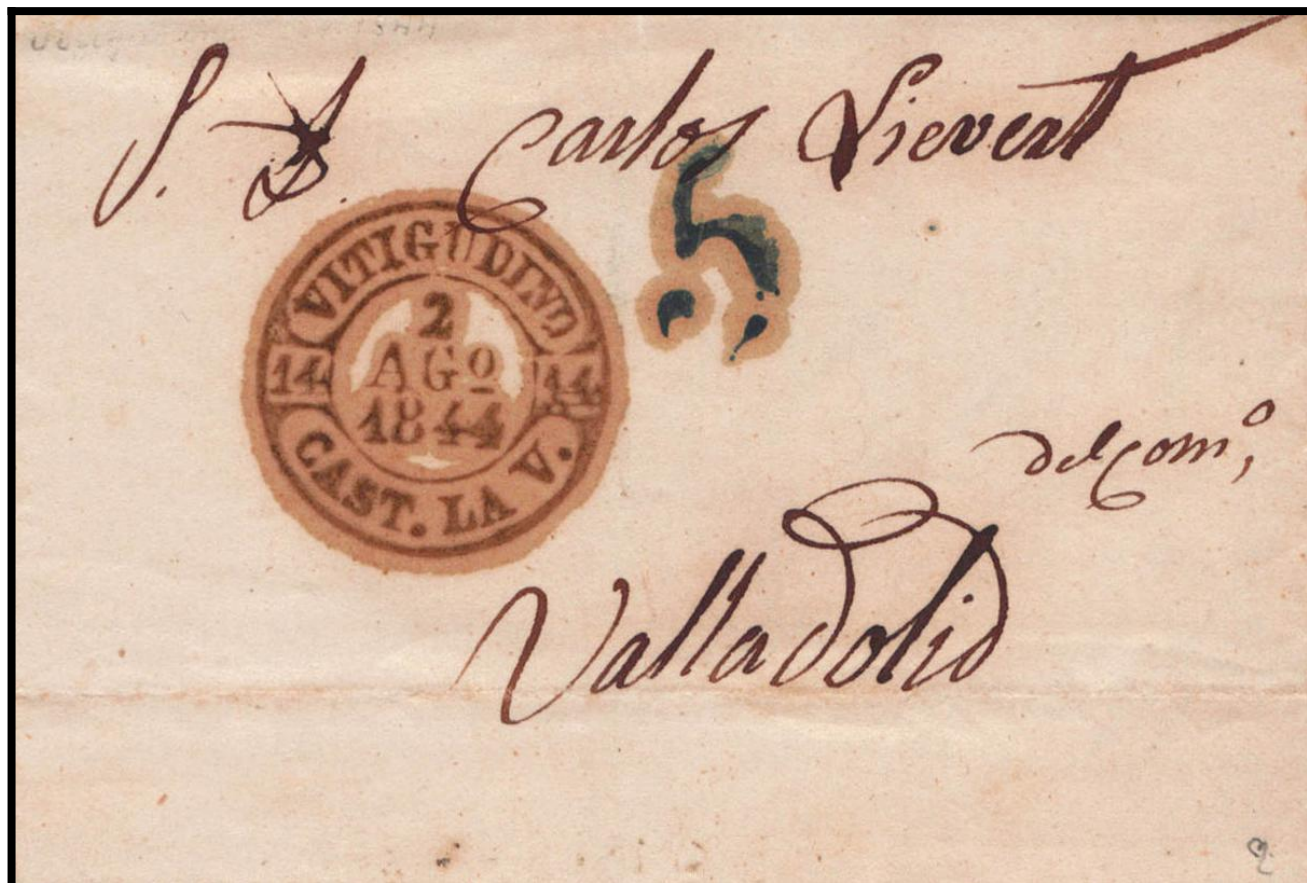 S. D. Carlos Lievert
VITIGUDINO
14 14
2
AGº
1844
CAST. LA V.
5
del comº,
Valladolid